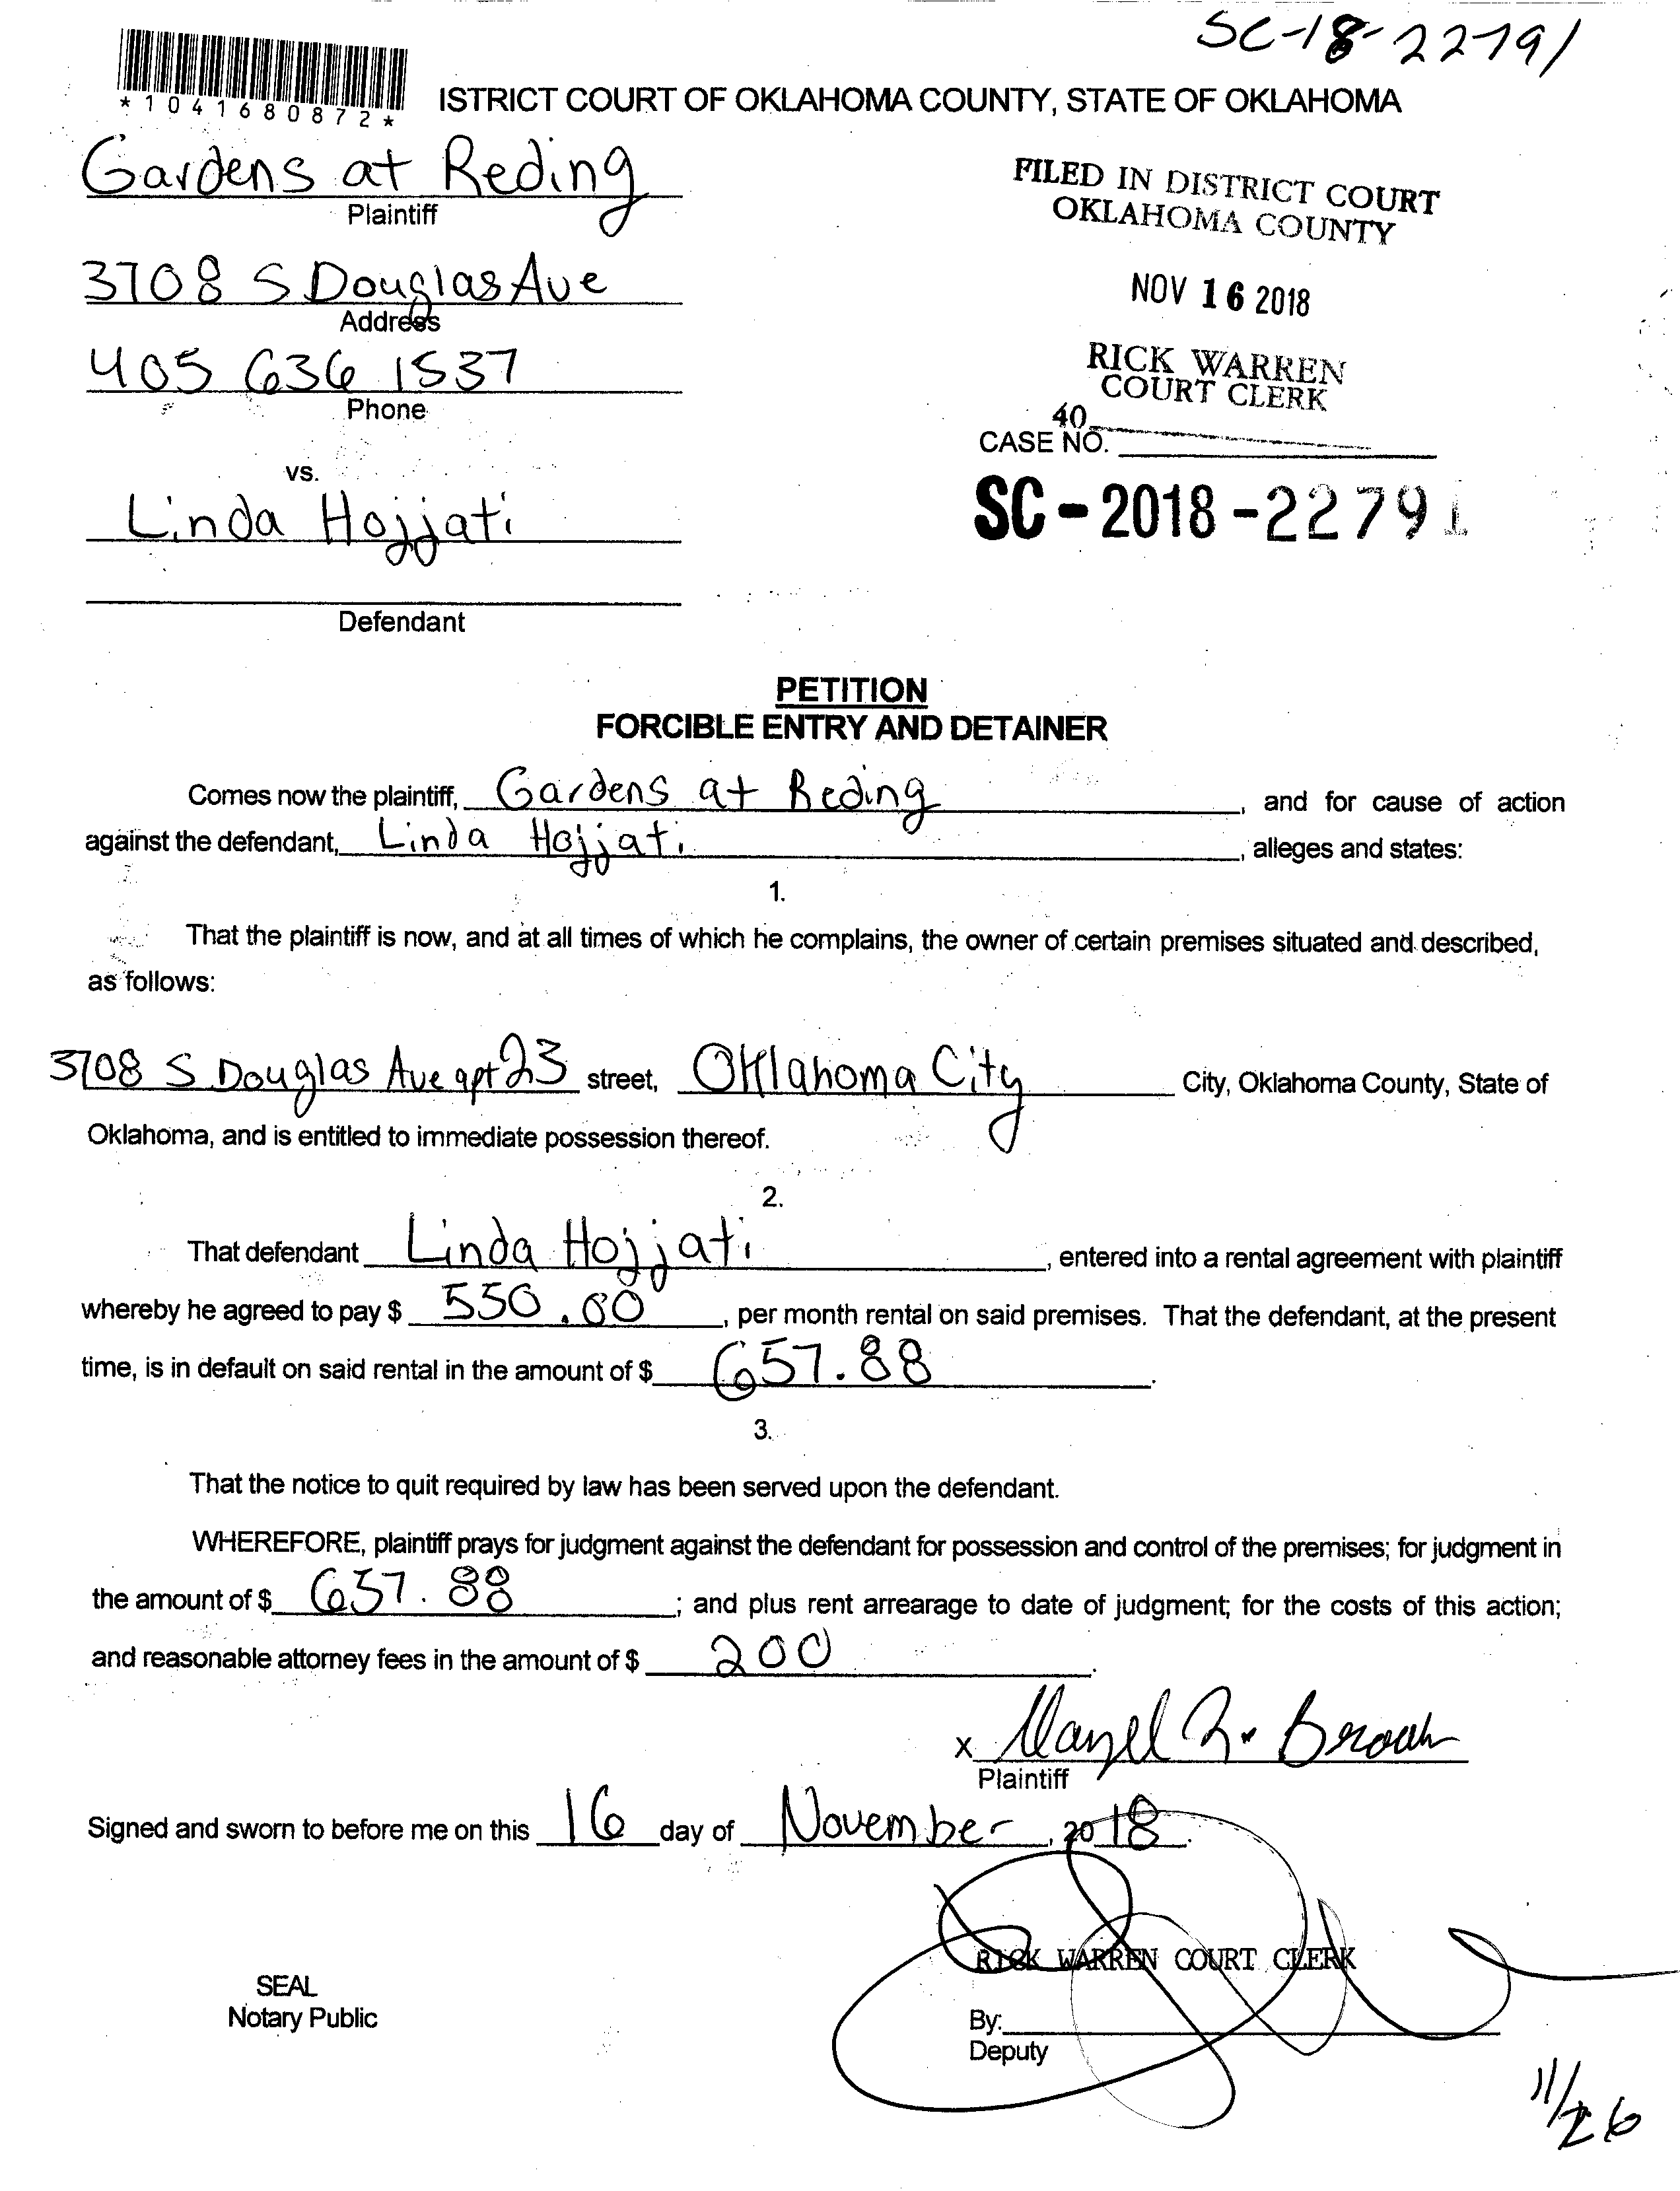 SC-18-22791
*1041680872*
ISTRICT COURT OF OKLAHOMA COUNTY, STATE OF OKLAHOMA
Gardens at Reding
Plaintiff
FILED IN DISTRICT COURT
OKLAHOMA COUNTY
3708 S Douglas Ave
Address
NOV 16 2018
405 636 1537
Phone
RICK WARREN
COURT CLERK
40
CASE NO.
vs.
SC-2018-22791
Linda Hojjati
Defendant
PETITION
FORCIBLE ENTRY AND DETAINER
Comes now the plaintiff, Gardens at Reding, and for cause of action
against the defendant, Linda Hojjati, alleges and states:
1.
That the plaintiff is now, and at all times of which he complains, the owner of certain premises situated and described,
as follows:
3708 S Douglas Ave apt 23 street, Oklahoma City City, Oklahoma County, State of
Oklahoma, and is entitled to immediate possession thereof.
2.
That defendant Linda Hojjati, entered into a rental agreement with plaintiff
whereby he agreed to pay $ 550.00, per month rental on said premises. That the defendant, at the present
time, is in default on said rental in the amount of $ 657.88.
3.
That the notice to quit required by law has been served upon the defendant.
WHEREFORE, plaintiff prays for judgment against the defendant for possession and control of the premises; for judgment in
the amount of $ 657.88; and plus rent arrearage to date of judgment; for the costs of this action;
and reasonable attorney fees in the amount of $ 200.
x
Plaintiff
Signed and sworn to before me on this 16 day of November, 2018.
RICK WARREN COURT CLERK
SEAL
Notary Public
By:
Deputy
11/26